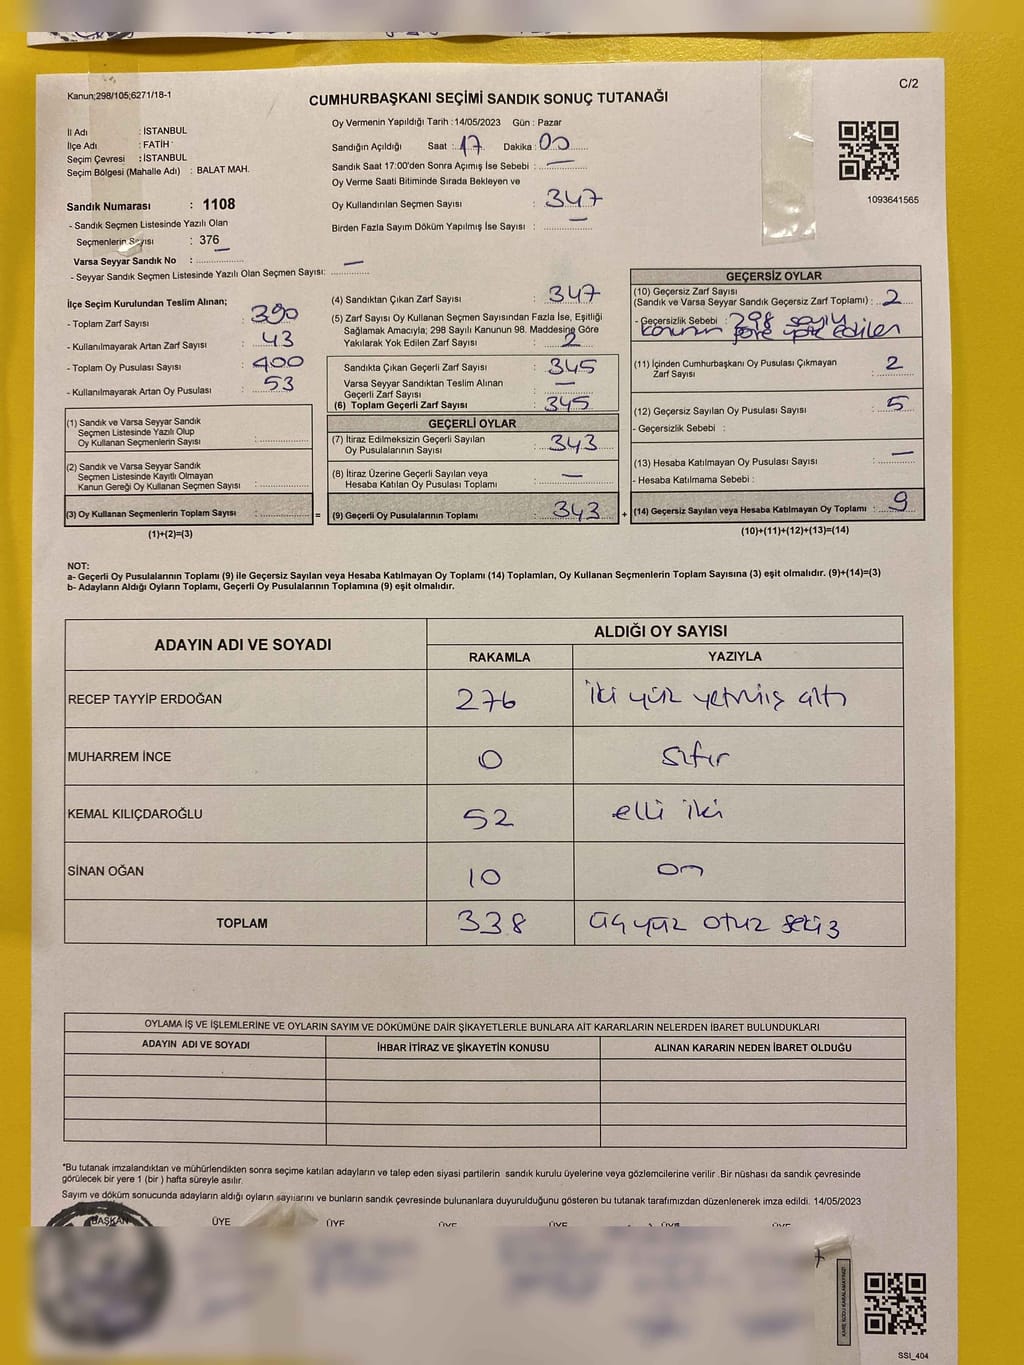 C/2
Kanun;298/105;6271/18-1
CUMHURBAŞKANI SEÇİMİ SANDIK SONUÇ TUTANAĞI
İl Adı : İSTANBUL
İlçe Adı : FATİH
Seçim Çevresi : İSTANBUL
Seçim Bölgesi (Mahalle Adı) : BALAT MAH.
Sandık Numarası : 1108
- Sandık Seçmen Listesinde Yazılı Olan
Seçmenlerin Sayısı : 376
Varsa Seyyar Sandık No : —
- Seyyar Sandık Seçmen Listesinde Yazılı Olan Seçmen Sayısı: —
Oy Vermenin Yapıldığı Tarih :14/05/2023 Gün : Pazar
Sandığın Açıldığı Saat : 17 Dakika : 00
Sandık Saat 17:00'den Sonra Açımış İse Sebebi : —
Oy Verme Saati Bitiminde Sırada Bekleyen ve
Oy Kullandırılan Seçmen Sayısı : 347
Birden Fazla Sayım Döküm Yapılmış İse Sayısı : —
1093641565
İlçe Seçim Kurulundan Teslim Alınan;
- Toplam Zarf Sayısı : 390
- Kullanılmayarak Artan Zarf Sayısı : 43
- Toplam Oy Pusulası Sayısı : 400
- Kullanılmayarak Artan Oy Pusulası : 53
(1) Sandık ve Varsa Seyyar Sandık
Seçmen Listesinde Yazılı Olup
Oy Kullanan Seçmenlerin Sayısı :
(2) Sandık ve Varsa Seyyar Sandık
Seçmen Listesinde Kayıtlı Olmayan
Kanun Gereği Oy Kullanan Seçmen Sayısı :
(3) Oy Kullanan Seçmenlerin Toplam Sayısı : =
(1)+(2)=(3)
(4) Sandıktan Çıkan Zarf Sayısı : 347
(5) Zarf Sayısı Oy Kullanan Seçmen Sayısından Fazla İse, Eşitliği
Sağlamak Amacıyla; 298 Sayılı Kanunun 98. Maddesine Göre
Yakılarak Yok Edilen Zarf Sayısı : 2
Sandıkta Çıkan Geçerli Zarf Sayısı : 345
Varsa Seyyar Sandıktan Teslim Alınan
Geçerli Zarf Sayısı : —
(6) Toplam Geçerli Zarf Sayısı : 345
GEÇERLİ OYLAR
(7) İtiraz Edilmeksizin Geçerli Sayılan
Oy Pusulalarının Sayısı : 343
(8) İtiraz Üzerine Geçerli Sayılan veya
Hesaba Katılan Oy Pusulası Toplamı : —
(9) Geçerli Oy Pusulalarının Toplamı : 343 +
GEÇERSİZ OYLAR
(10) Geçersiz Zarf Sayısı
(Sandık ve Varsa Seyyar Sandık Geçersiz Zarf Toplamı) : 2
- Geçersizlik Sebebi : 298 sayılı
kanunun göre edilen
(11) İçinden Cumhurbaşkanı Oy Pusulası Çıkmayan
Zarf Sayısı : 2
(12) Geçersiz Sayılan Oy Pusulası Sayısı : 5
- Geçersizlik Sebebi :
(13) Hesaba Katılmayan Oy Pusulası Sayısı : —
- Hesaba Katılmama Sebebi :
(14) Geçersiz Sayılan veya Hesaba Katılmayan Oy Toplamı : 9
(10)+(11)+(12)+(13)=(14)
NOT:
a- Geçerli Oy Pusulalarının Toplamı (9) ile Geçersiz Sayılan veya Hesaba Katılmayan Oy Toplamı (14) Toplamları, Oy Kullanan Seçmenlerin Toplam Sayısına (3) eşit olmalıdır. (9)+(14)=(3)
b- Adayların Aldığı Oyların Toplamı, Geçerli Oy Pusulalarının Toplamına (9) eşit olmalıdır.
ADAYIN ADI VE SOYADI
ALDIĞI OY SAYISI
RAKAMLA YAZIYLA
RECEP TAYYİP ERDOĞAN 276 iki yüz yetmiş altı
MUHARREM İNCE 0 sıfır
KEMAL KILIÇDAROĞLU 52 elli iki
SİNAN OĞAN 10 on
TOPLAM 338 üç yüz otuz sekiz
OYLAMA İŞ VE İŞLEMLERİNE VE OYLARIN SAYIM VE DÖKÜMÜNE DAİR ŞİKAYETLERLE BUNLARA AİT KARARLARIN NELERDEN İBARET BULUNDUKLARI
ADAYIN ADI VE SOYADI İHBAR İTİRAZ VE ŞİKAYETİN KONUSU ALINAN KARARIN NEDEN İBARET OLDUĞU
*Bu tutanak imzalandıktan ve mühürlendikten sonra seçime katılan adayların ve talep eden siyasi partilerin sandık kurulu üyelerine veya gözlemcilerine verilir .Bir nüshası da sandık çevresinde
görülecek bir yere 1 (bir ) hafta süreyle asılır.
Sayım ve döküm sonucunda adayların aldığı oyların sayılarını ve bunların sandık çevresinde bulunanlara duyurulduğunu gösteren bu tutanak tarafımızdan düzenlenerek imza edildi. 14/05/2023
BAŞKAN ÜYE ÜYE ÜYE ÜYE ÜYE ÜYE
KARE KODU KARALAMAYINIZ!
SSI_404